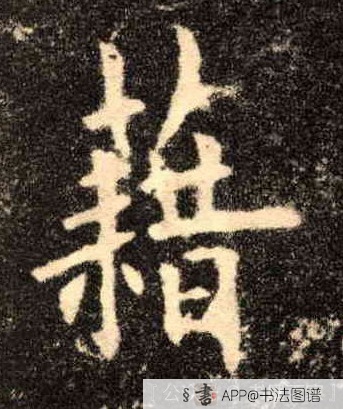 藉
書 APP@书法图谱